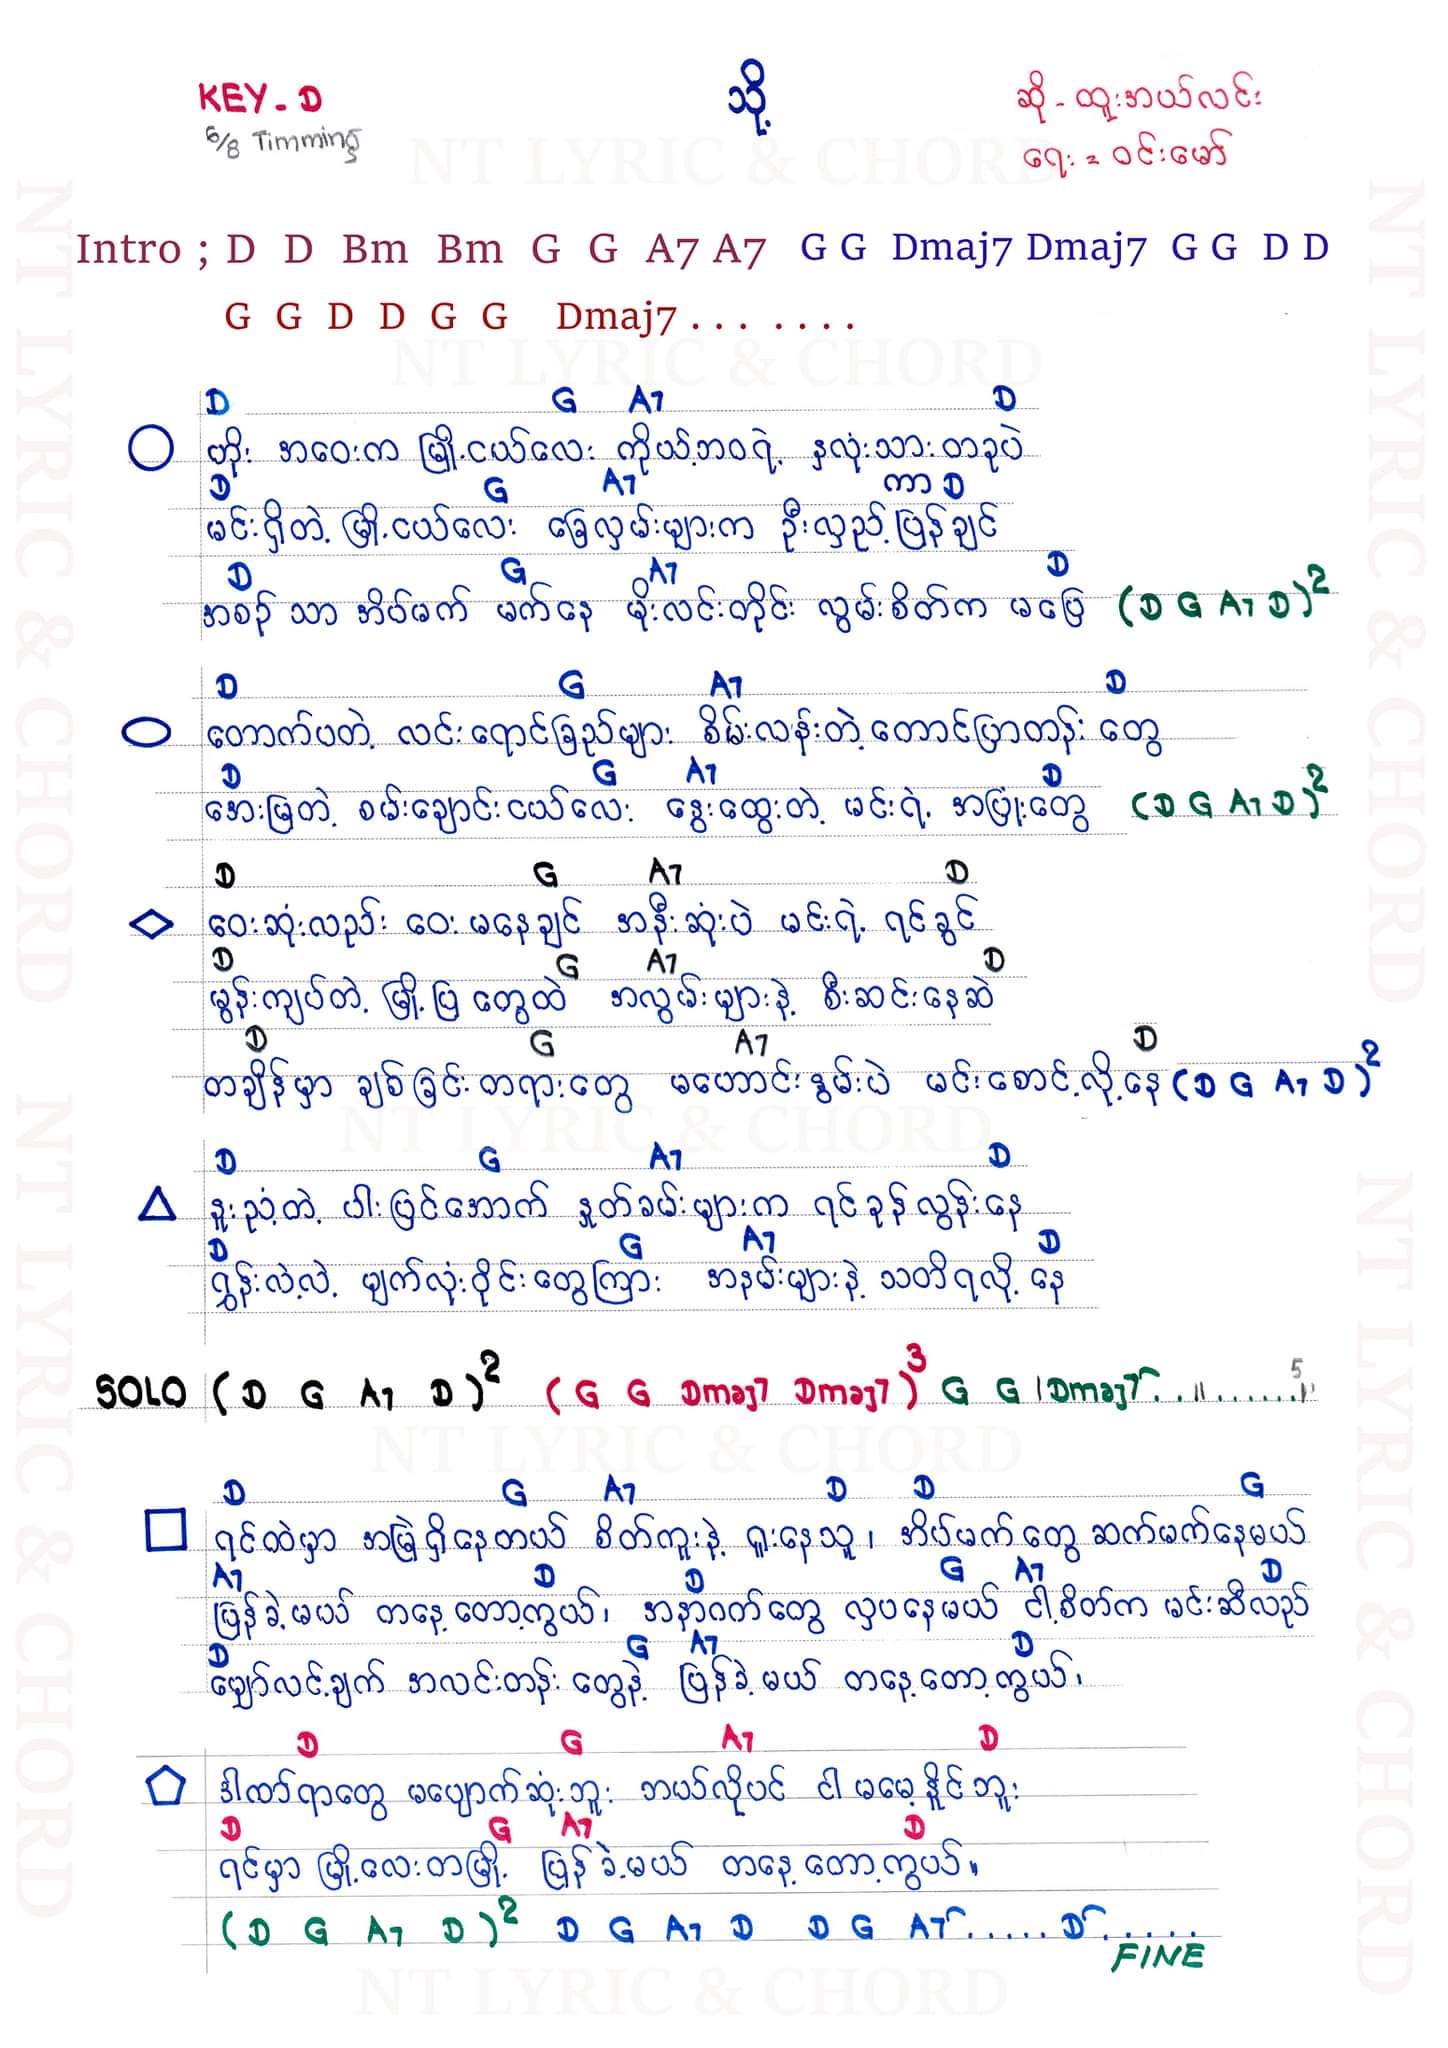 KEY - D
6/8 Timming
သို့
ဆို - ထူးအယ်လင်း
ရေး = ဝင်းမော်
NT LYRIC & CHORD
Intro ; D D Bm Bm G G A7 A7 G G Dmaj7 Dmaj7 G G D D
G G D D G G Dmaj7 . . . . . . .
NT LYRIC & CHORD
D G A7 D
ဟိုး အဝေးက မြို့ငယ်လေး ကိုယ့်ဘဝရဲ့ နှလုံးသားတခုပဲ
D G A7 ကာ D
မင်းရှိတဲ့ မြို့ငယ်လေး ခြေလှမ်းများက ဦးလှည့်ပြန်ချင်
D G A7 D
အစဉ် သာ အိပ်မက် မက်နေ မိုးလင်းတိုင်း လွမ်းစိတ်က မပြေ (D G A7 D)2
D G A7 D
တောက်ပတဲ့ လင်းရောင်ခြည်များ စိမ်းလန်းတဲ့တောင်ပြာတန်းတွေ
D G A7 D
အေးမြတဲ့ စမ်းချောင်းငယ်လေး နွေးထွေးတဲ့ မင်းရဲ့ အပြုံးတွေ (D G A7 D)2
D G A7 D
ဝေးဆုံးလည်း ဝေးမနေချင် အနီးဆုံးပဲ မင်းရဲ့ ရင်ခွင်
D G A7 D
မွန်းကျပ်တဲ့ မြို့ပြတွေထဲ အလွမ်းများနဲ့ စီးဆင်းနေဆဲ
D G A7 D
တချိန်မှာ ချစ်ခြင်းတရားတွေ မဟောင်းနွမ်းပဲ မင်းစောင့်လို့နေ (D G A7 D)2
NT LYRIC & CHORD
D G A7 D
နူးညံ့တဲ့ ပါးပြင်အောက် နှုတ်ခမ်းများက ရင်ခုန်လွန်းနေ
D G A7 D
ရွှန်းလဲ့လဲ့ မျက်လုံးဝိုင်းတွေကြား အနမ်းများနဲ့ သတိရလို့ နေ
SOLO (D G A7 D)2 (G G Dmaj7 Dmaj7)3 G G | Dmaj7 . . || . . . . . . . 5 ||
NT LYRIC & CHORD
D G A7 D D G
ရင်ထဲမှာ အမြဲရှိနေတယ် စိတ်ကူးနဲ့ ရူးနေသူ၊ အိပ်မက်တွေဆက်မက်နေမယ်
A7 D D G A7 D
ပြန်ခဲ့မယ် တနေ့တော့ကွယ်၊ အနာဂတ်တွေ လှပနေမယ် ငါ့စိတ်က မင်းဆီလည်
D G A7 D
မျှော်လင့်ချက် အလင်းတန်းတွေနဲ့ ပြန်ခဲ့မယ် တနေ့တော့ကွယ်၊
D G A7 D
ဒါဏ်ရာတွေ မပျောက်ဆုံးဘူး ဘယ်လိုပင် ငါ မမေ့နိုင်ဘူး
D G A7 D
ရင်မှာ မြို့လေးတမြို့ ပြန်ခဲ့မယ် တနေ့တော့ကွယ်။
(D G A7 D)2 D G A7 D D G A7 . . . . . D . . . . .
FINE
NT LYRIC & CHORD
NT LYRIC & CHORD
NT LYRIC & CHORD
NT LYRIC & CHORD
NT LYRIC & CHORD